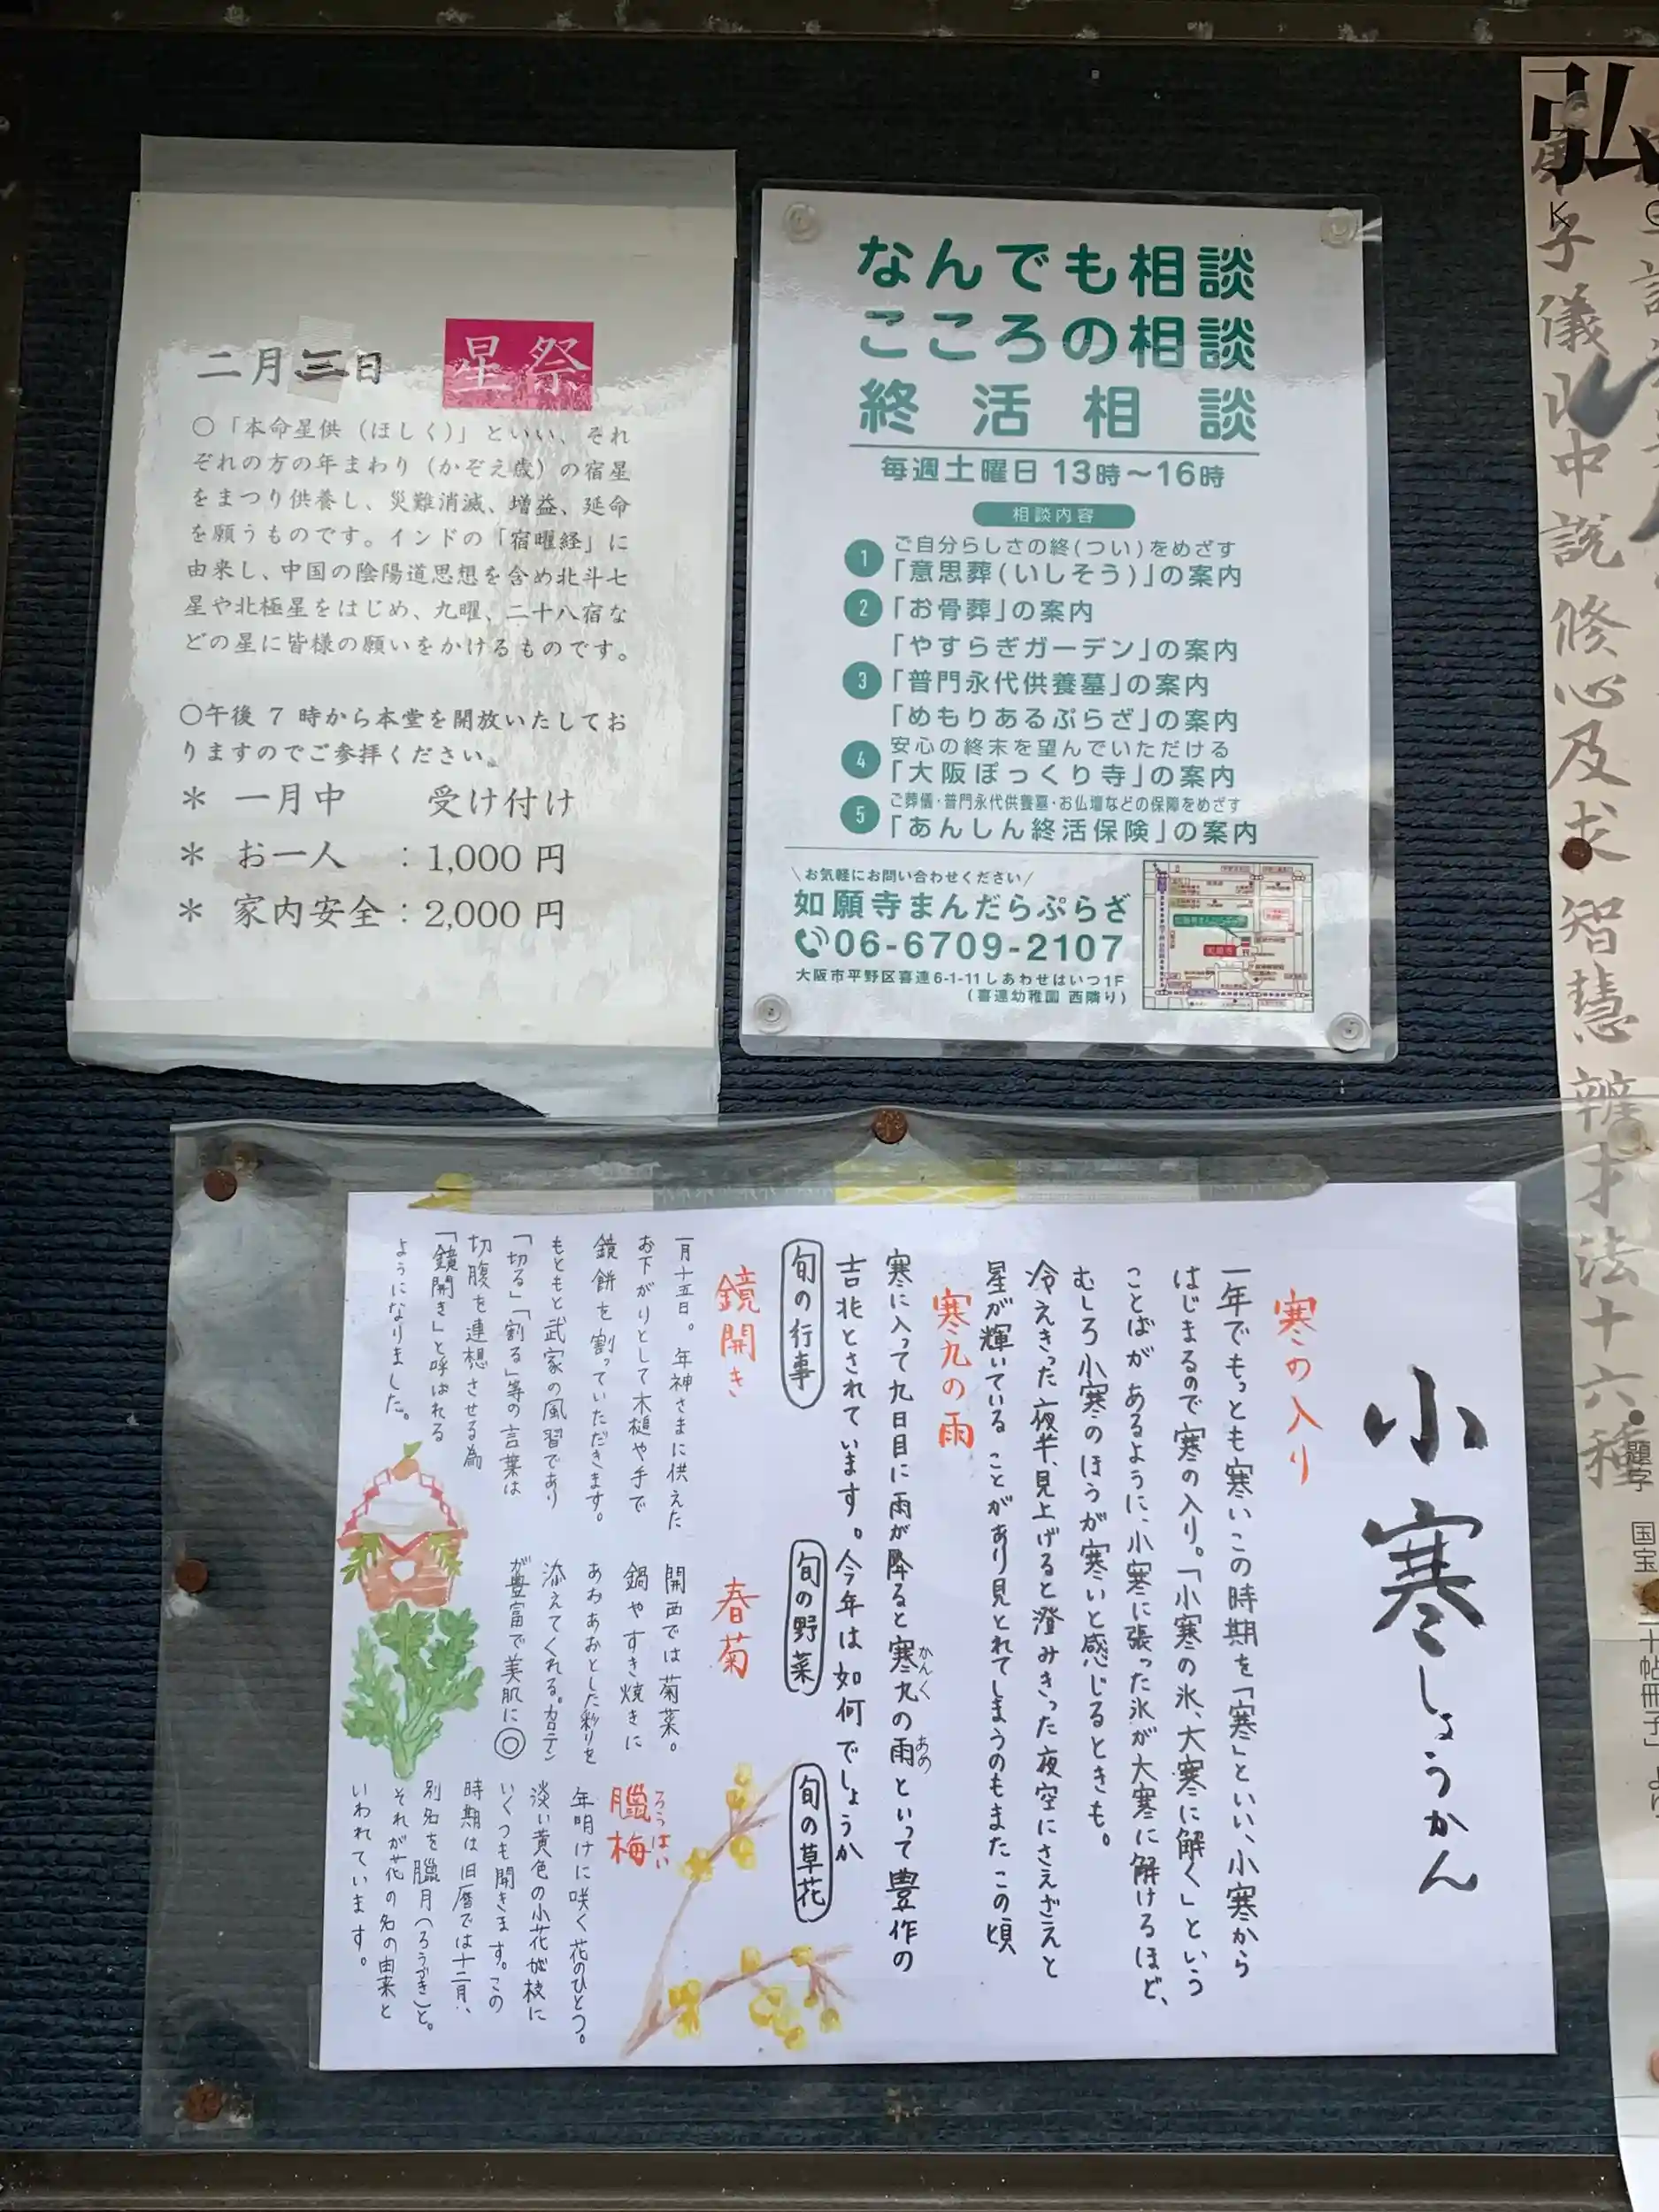 二月三日
星祭
○「本命星供（ほしく）」といい、それ
ぞれの方の年まわり（かぞえ歳）の宿星
をまつり供養し、災難消滅、増益、延命
を願うものです。インドの「宿曜経」に
由来し、中国の陰陽道思想を含め北斗七
星や北極星をはじめ、九曜、二十八宿な
どの星に皆様の願いをかけるものです。
○午後 7 時から本堂を開放いたしてお
りますのでご参拝ください。
＊ 一月中 受け付け
＊ お一人 ：1,000 円
＊ 家内安全：2,000 円
なんでも相談
こころの相談
終活相談
毎週土曜日 13時～16時
相談内容
1 ご自分らしさの終(つい)をめざす
「意思葬(いしそう)」の案内
2 「お骨葬」の案内
「やすらぎガーデン」の案内
3 「普門永代供養墓」の案内
「めもりあるぷらざ」の案内
4 安心の終末を望んでいただける
「大阪ぽっくり寺」の案内
5 ご葬儀・普門永代供養墓・お仏壇などの保障をめざす
「あんしん終活保険」の案内
\お気軽にお問い合わせください/
如願寺まんだらぷらざ
06-6709-2107
大阪市平野区喜連6-1-11しあわせはいつ1F
(喜連幼稚園 西隣り)
小寒 しょうかん
寒の入り
一年でもっとも寒いこの時期を「寒」といい、小寒から
はじまるので寒の入り。「小寒の氷、大寒に解く」という
ことばがあるように、小寒に張った氷が大寒に解けるほど、
むしろ小寒のほうが寒いと感じるときも。
冷えきった夜半、見上げると澄みきった夜空にさえざえと
星が輝いていることがあり見とれてしまうのもまたこの頃
寒九の雨
寒に入って九日目に雨が降ると寒九の雨といって豊作の
かんく
あめ
吉兆とされています。今年は如何でしょうか
旬の行事
鏡開き
一月十五日。年神さまに供えた
お下がりとして木槌や手で
鏡餅を割っていただきます。
もともと武家の風習であり
「切る」「割る」等の言葉は
切腹を連想させる為
「鏡開き」と呼ばれる
ようになりました。
旬の野菜
春菊
関西では菊菜。
鍋やすき焼きに
あおあおとした彩りを
添えてくれる。カロテン
が豊富で美肌に◎
旬の草花
臘梅
ろうばい
年明けに咲く花のひとつ。
淡い黄色の小花が枝に
いくつも開きます。この
時期は旧暦では十二月、
別名を臘月(ろうげつ)と。
それが花の名の由来と
いわれています。
弘
K
字儀
中說修心及求
智慧
辨才法十六種
題字
国宝
十帖冊子」より